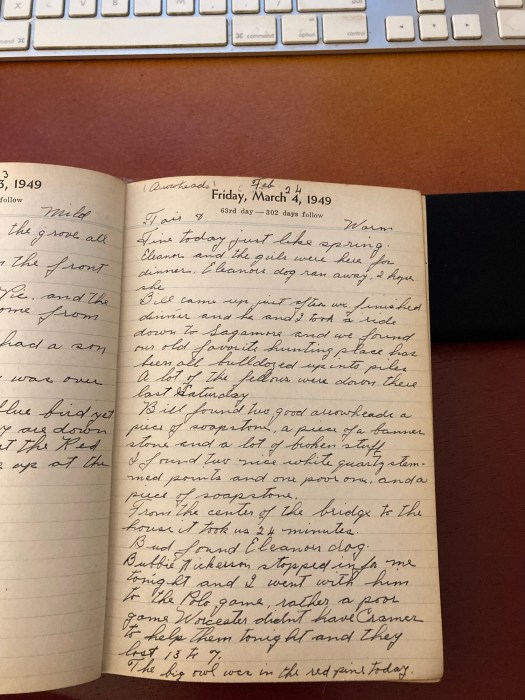 command
option
control
command
option
3, 1949
follow
Mild
the grove all
the front
and the
ome from
had a son
was over
blue bird yet
are down
at the Red
up at the
(Arrowheads) Feb 24
Friday, March 4, 1949
63rd day — 302 days follow
Fair & Warm
Fine today just like spring.
Eleanor and the girls were here for
dinner. Eleanors dog ran away. I hope
she
Bill came up just after we finished
dinner and he and I took a ride
down to Sagamore and we found
our old favorite hunting place has
been all bulldozed up into piles
A lot of the fellows were down there
last Saturday
Bill found two good arrowheads a
piece of soapstone, a piece of a banner
stone and a lot of broken stuff.
I found two nice white quartz stem-
med points and one poor one, and a
piece of soapstone.
From the center of the bridge to the
house it took us 24 minutes.
Bud found Eleanors dog.
Bubbie Nickerson stopped in for me
tonight and I went with him
to the Polo game, rather a poor
game Worcester didnt have Cramer
to help them tonight and they
lost 13 to 7.
The big owl was in the red pine today.